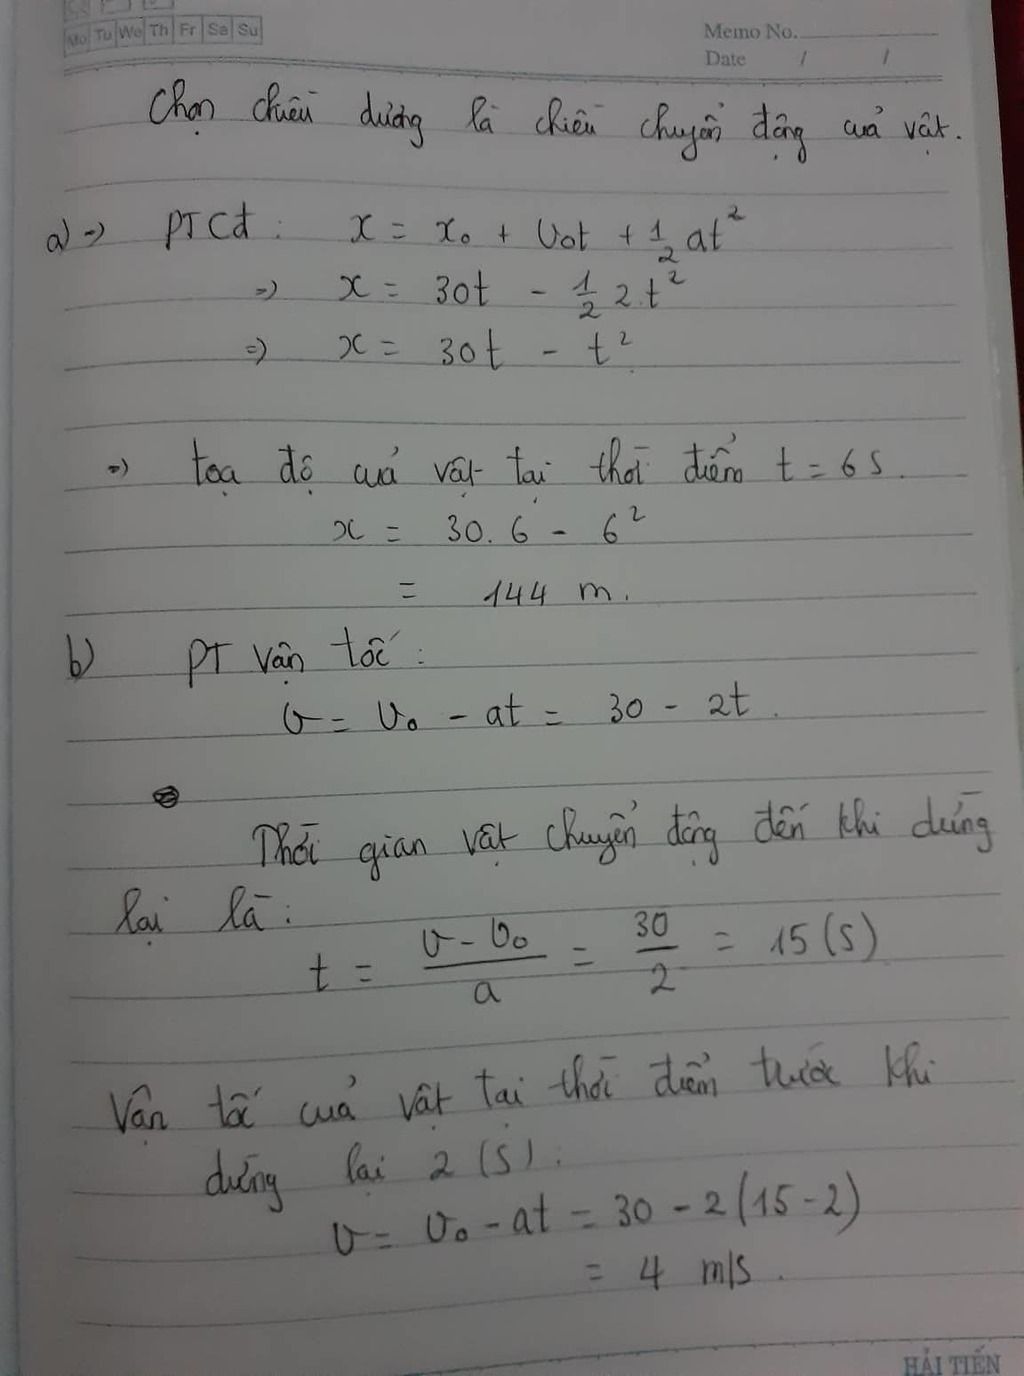 Mo Tu We Th Fr Sa Su
Memo No.
Date / /
Chọn chiều dương là chiều chuyển động của vật.
a) => PTCĐ: x = x₀ + v₀t + 1/2 at²
=> x = 30t - 1/2 2.t²
=> x = 30t - t²
=> toạ độ của vật tại thời điểm t = 6 s.
x = 30.6 - 6²
= 144 m.
b) PT vận tốc:
v = v₀ - at = 30 - 2t.
Thời gian vật chuyển động đến khi dừng
lại là:
t = (v - v₀)/a = 30/2 = 15 (s)
Vận tốc của vật tại thời điểm trước khi
dừng lại 2 (s):
v = v₀ - at = 30 - 2(15-2)
= 4 m/s.
HẢI TIẾN